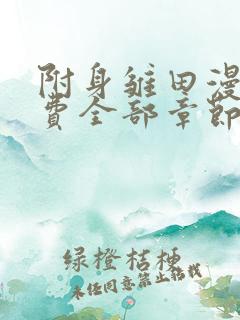 附身雏田漫
费全部章节
绿橙桔梗
未经同意禁止转载